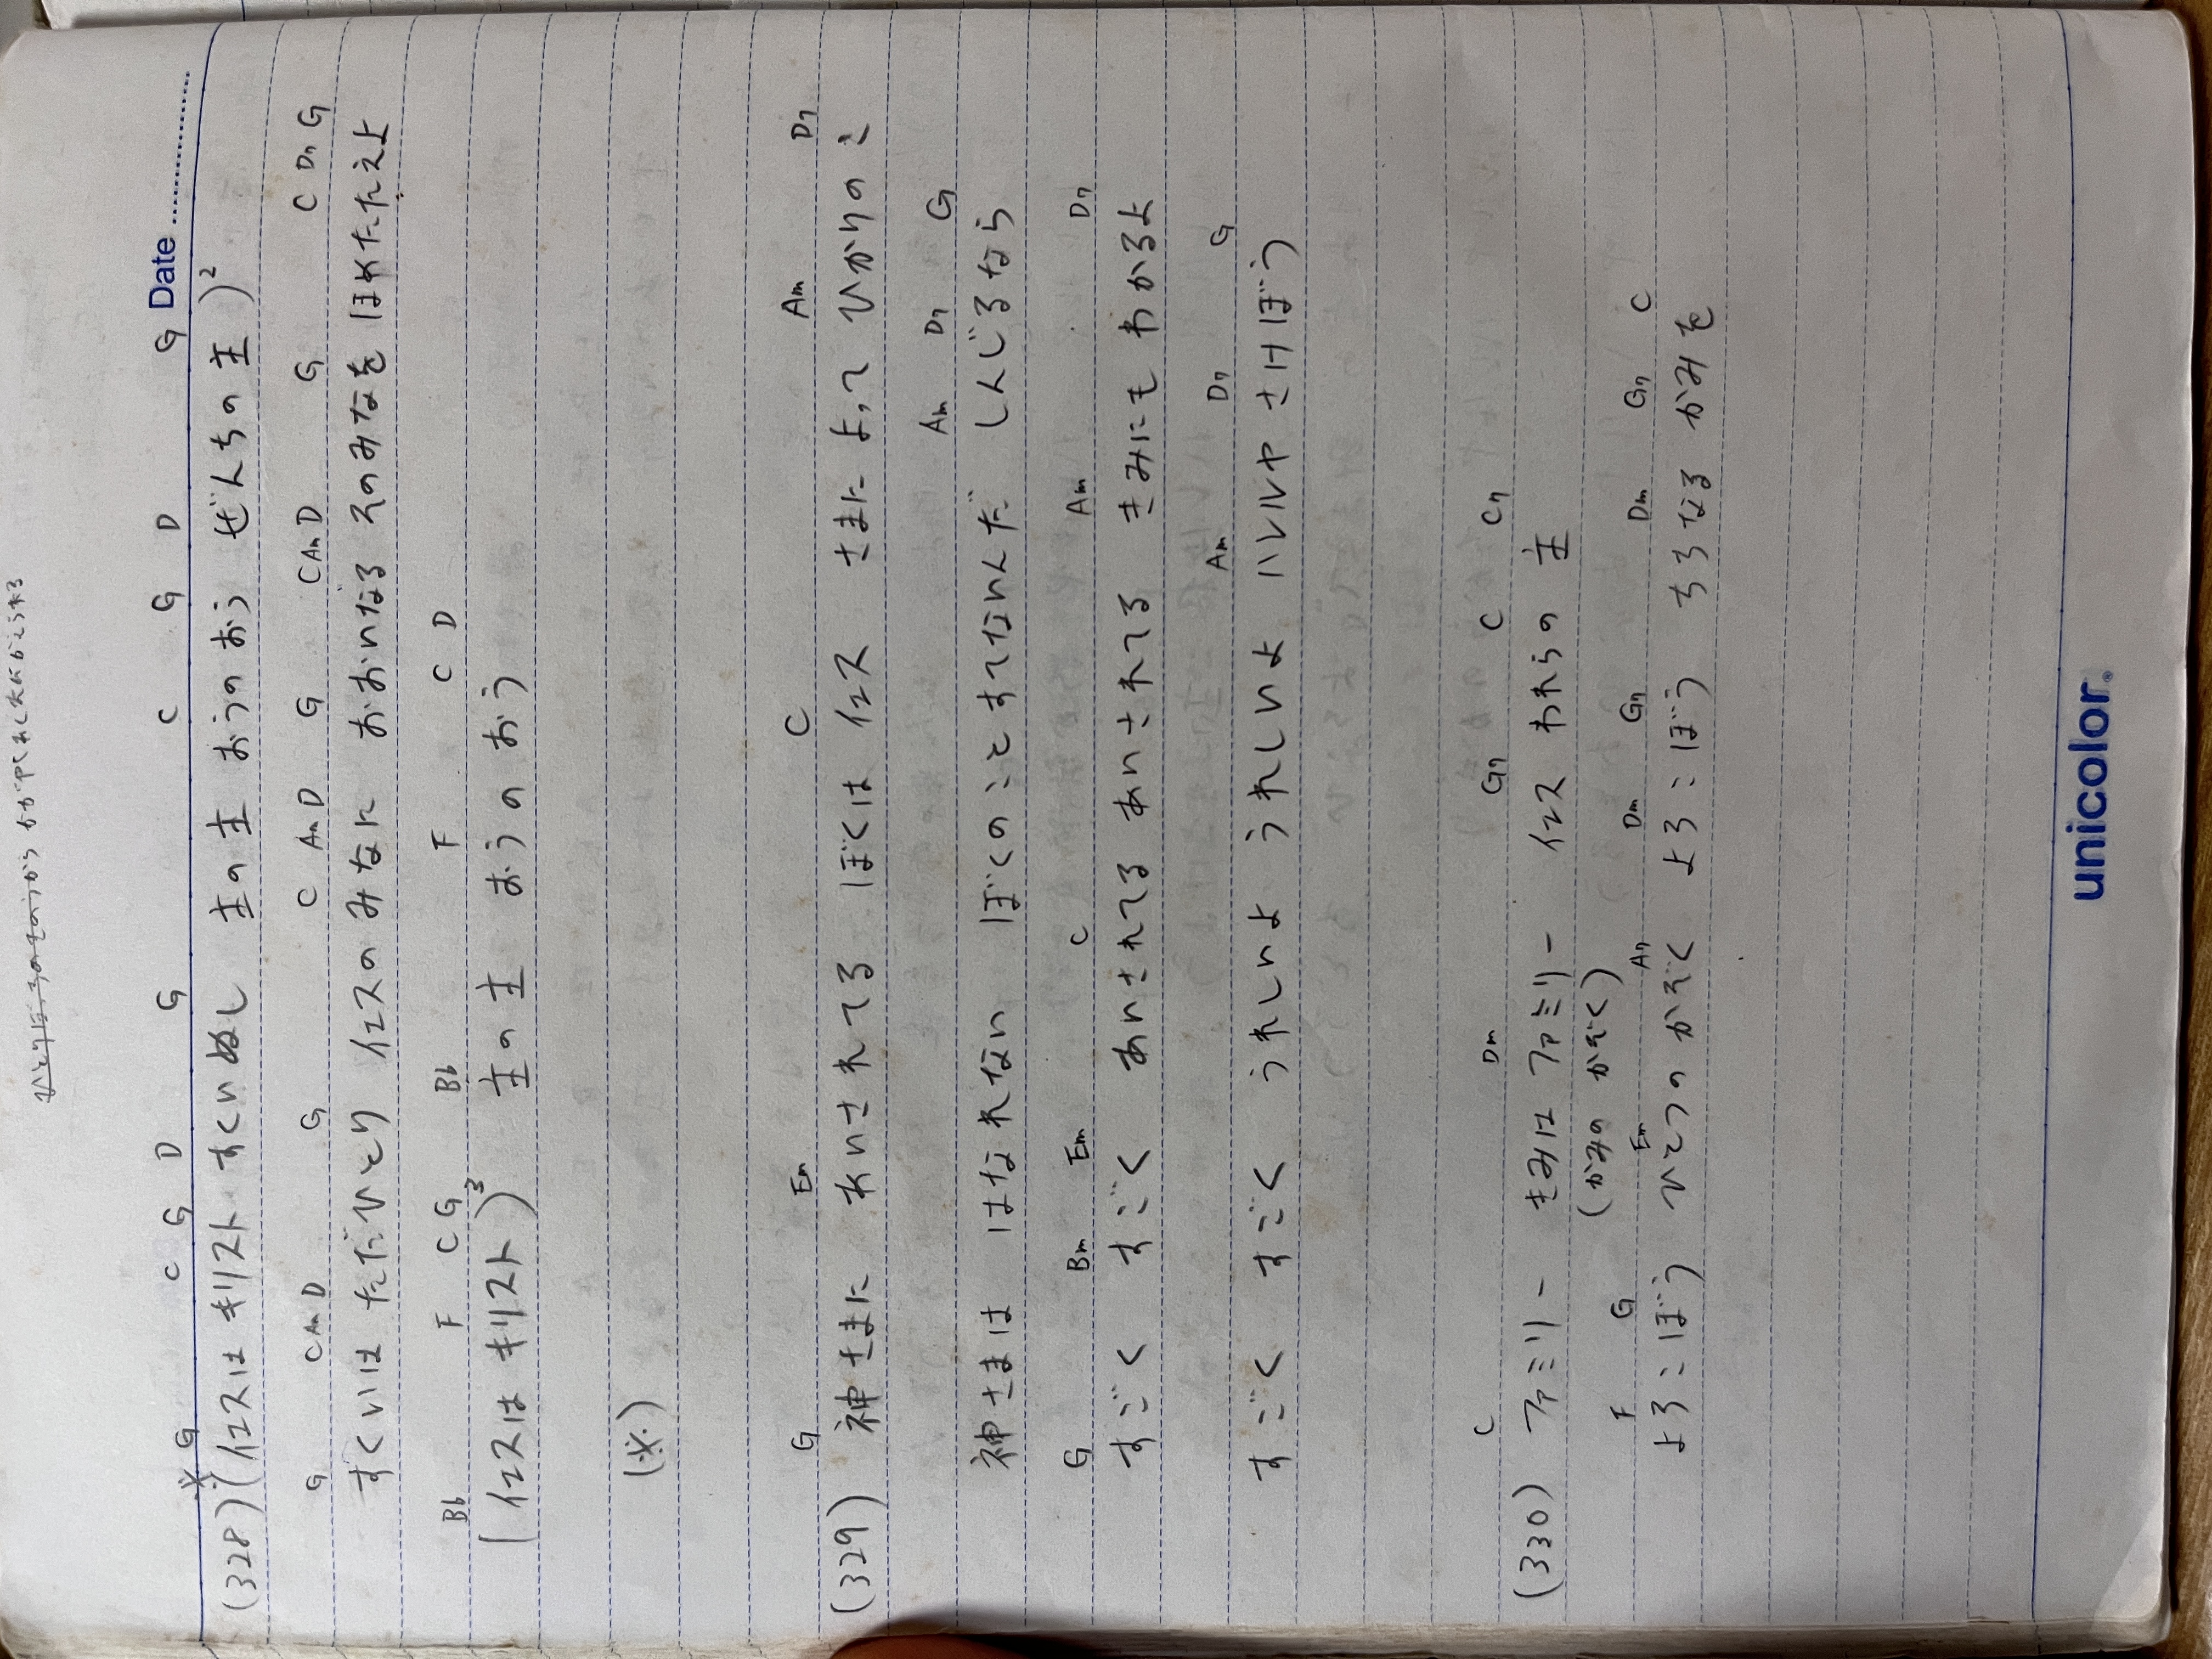 Date
G C G D G C G D G
(328) ※(イエスは キリスト すくいぬし 主の主 おうのおう ぜんちの主)²
G C Am D G C Am D G C Am D G C D7 G
すくいは ただひとり イエスのみなに おおいなる そのみなを ほめたたえよ
Bb F C G Bb F C D
(イエスは キリスト)³ 主の主 おうのおう
(※)
G Em C Am D7
(329) 神さまに あいされてる ぼくは イエス さまによって ひかりのこ
Am D7 G
神さまは はなれない ぼくのこと すてないんだ しんじるなら
G Bm Em C Am D7
すごく すごく すごく あいされてる あいされてる きみにも わかるよ
Am D7 G
すごく すごく うれしいよ うれしいよ ハレルヤ さけぼう
C Dm G7 C C7
(330) ファミリー きみは ファミリー イエス われらの 主
(かみの かぞく)
F G Em A7 Dm G7 Dm G7 C
よろこぼう ひとつの かぞく よろこぼう ちちなる かみを
unicolor